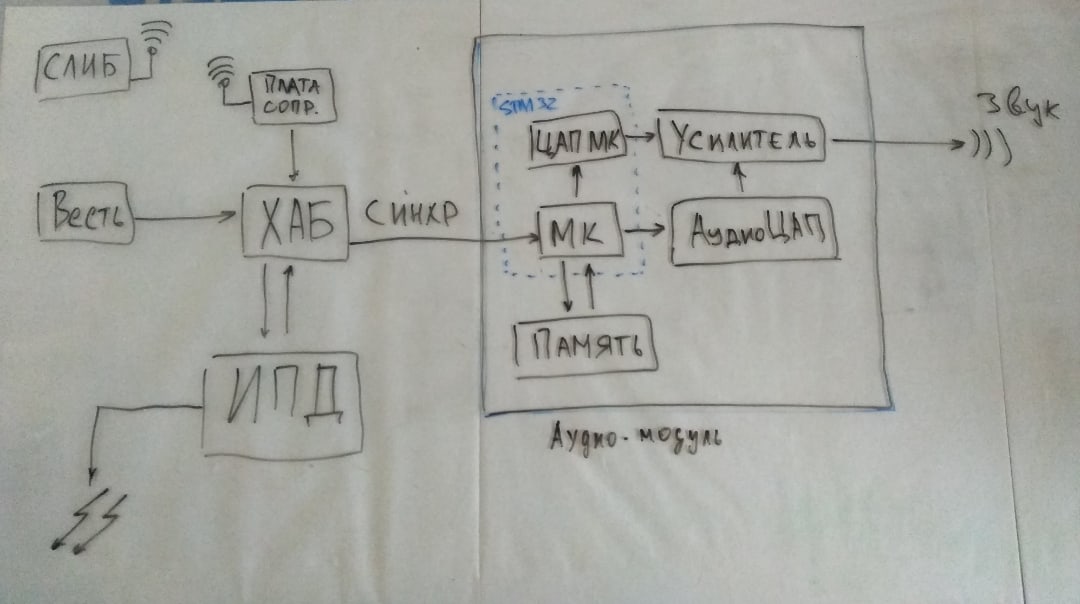 СЛИБ
ПЛАТА
СОПР.
Весть
ХАБ
СИНХР
ИПД
STM32
ЦАП МК
Усилитель
Звук
МК
АудиоЦАП
Память
Аудио-модуль